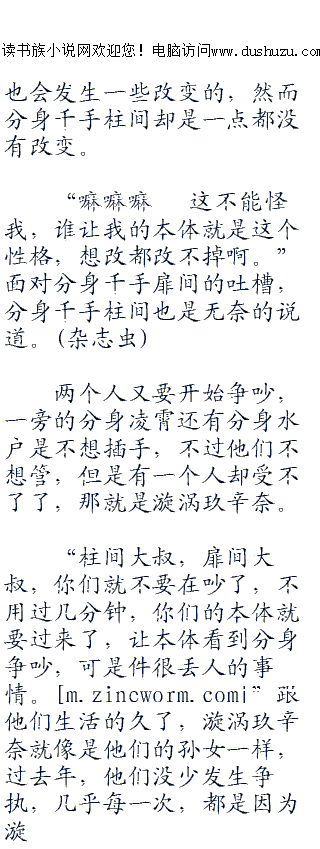 读书族小说网欢迎您！电脑访问www.dushuzu.com
也会发生一些改变的，然而
分身千手柱间却是一点都没
有改变。
“嘛嘛嘛　这不能怪
我，谁让我的本体就是这个
性格，想改都改不掉啊。”
面对分身千手扉间的吐槽，
分身千手柱间也是无奈的说
道。(杂志虫)
两个人又要开始争吵，
一旁的分身凌霄还有分身水
户是不想插手，不过他们不
想管，但是有一个人却受不
了了，那就是漩涡玖辛奈。
“柱间大叔，扉间大
叔，你们就不要在吵了，不
用过几分钟，你们的本体就
要过来了，让本体看到分身
争吵，可是件很丢人的事
情。[m.zincworm.com]”跟
他们生活的久了，漩涡玖辛
奈就像是他们的孙女一样，
过去年，他们没少发生争
执，几乎每一次，都是因为
漩